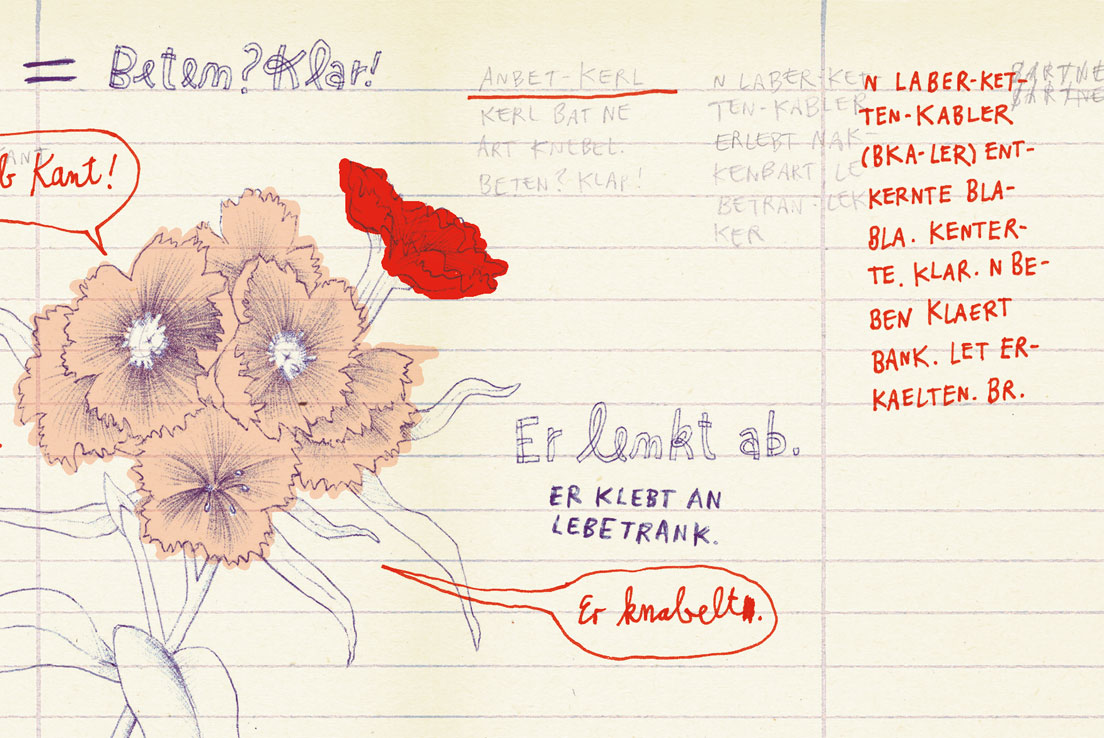 = Betem? Klar!
KANT
b Kant!
ANBET-KERL
KERL BAT NE
ART KNEBEL.
BETEN? KLAR!
N LABER-KET-
TEN-KABLER
ERLEBT NAK-
KENBART LE
BETRAN-LEK
KER
N LABER-KET-
TEN-KABLER
(BKA-LER) ENT-
KERNTE BLA-
BLA. KENTER-
TE. KLAR. N BE-
BEN KLAERT
BANK. LET ER-
KAELTEN. BR.
Er lenkt ab.
ER KLEBT AN
LEBETRANK.
Er knabelt.